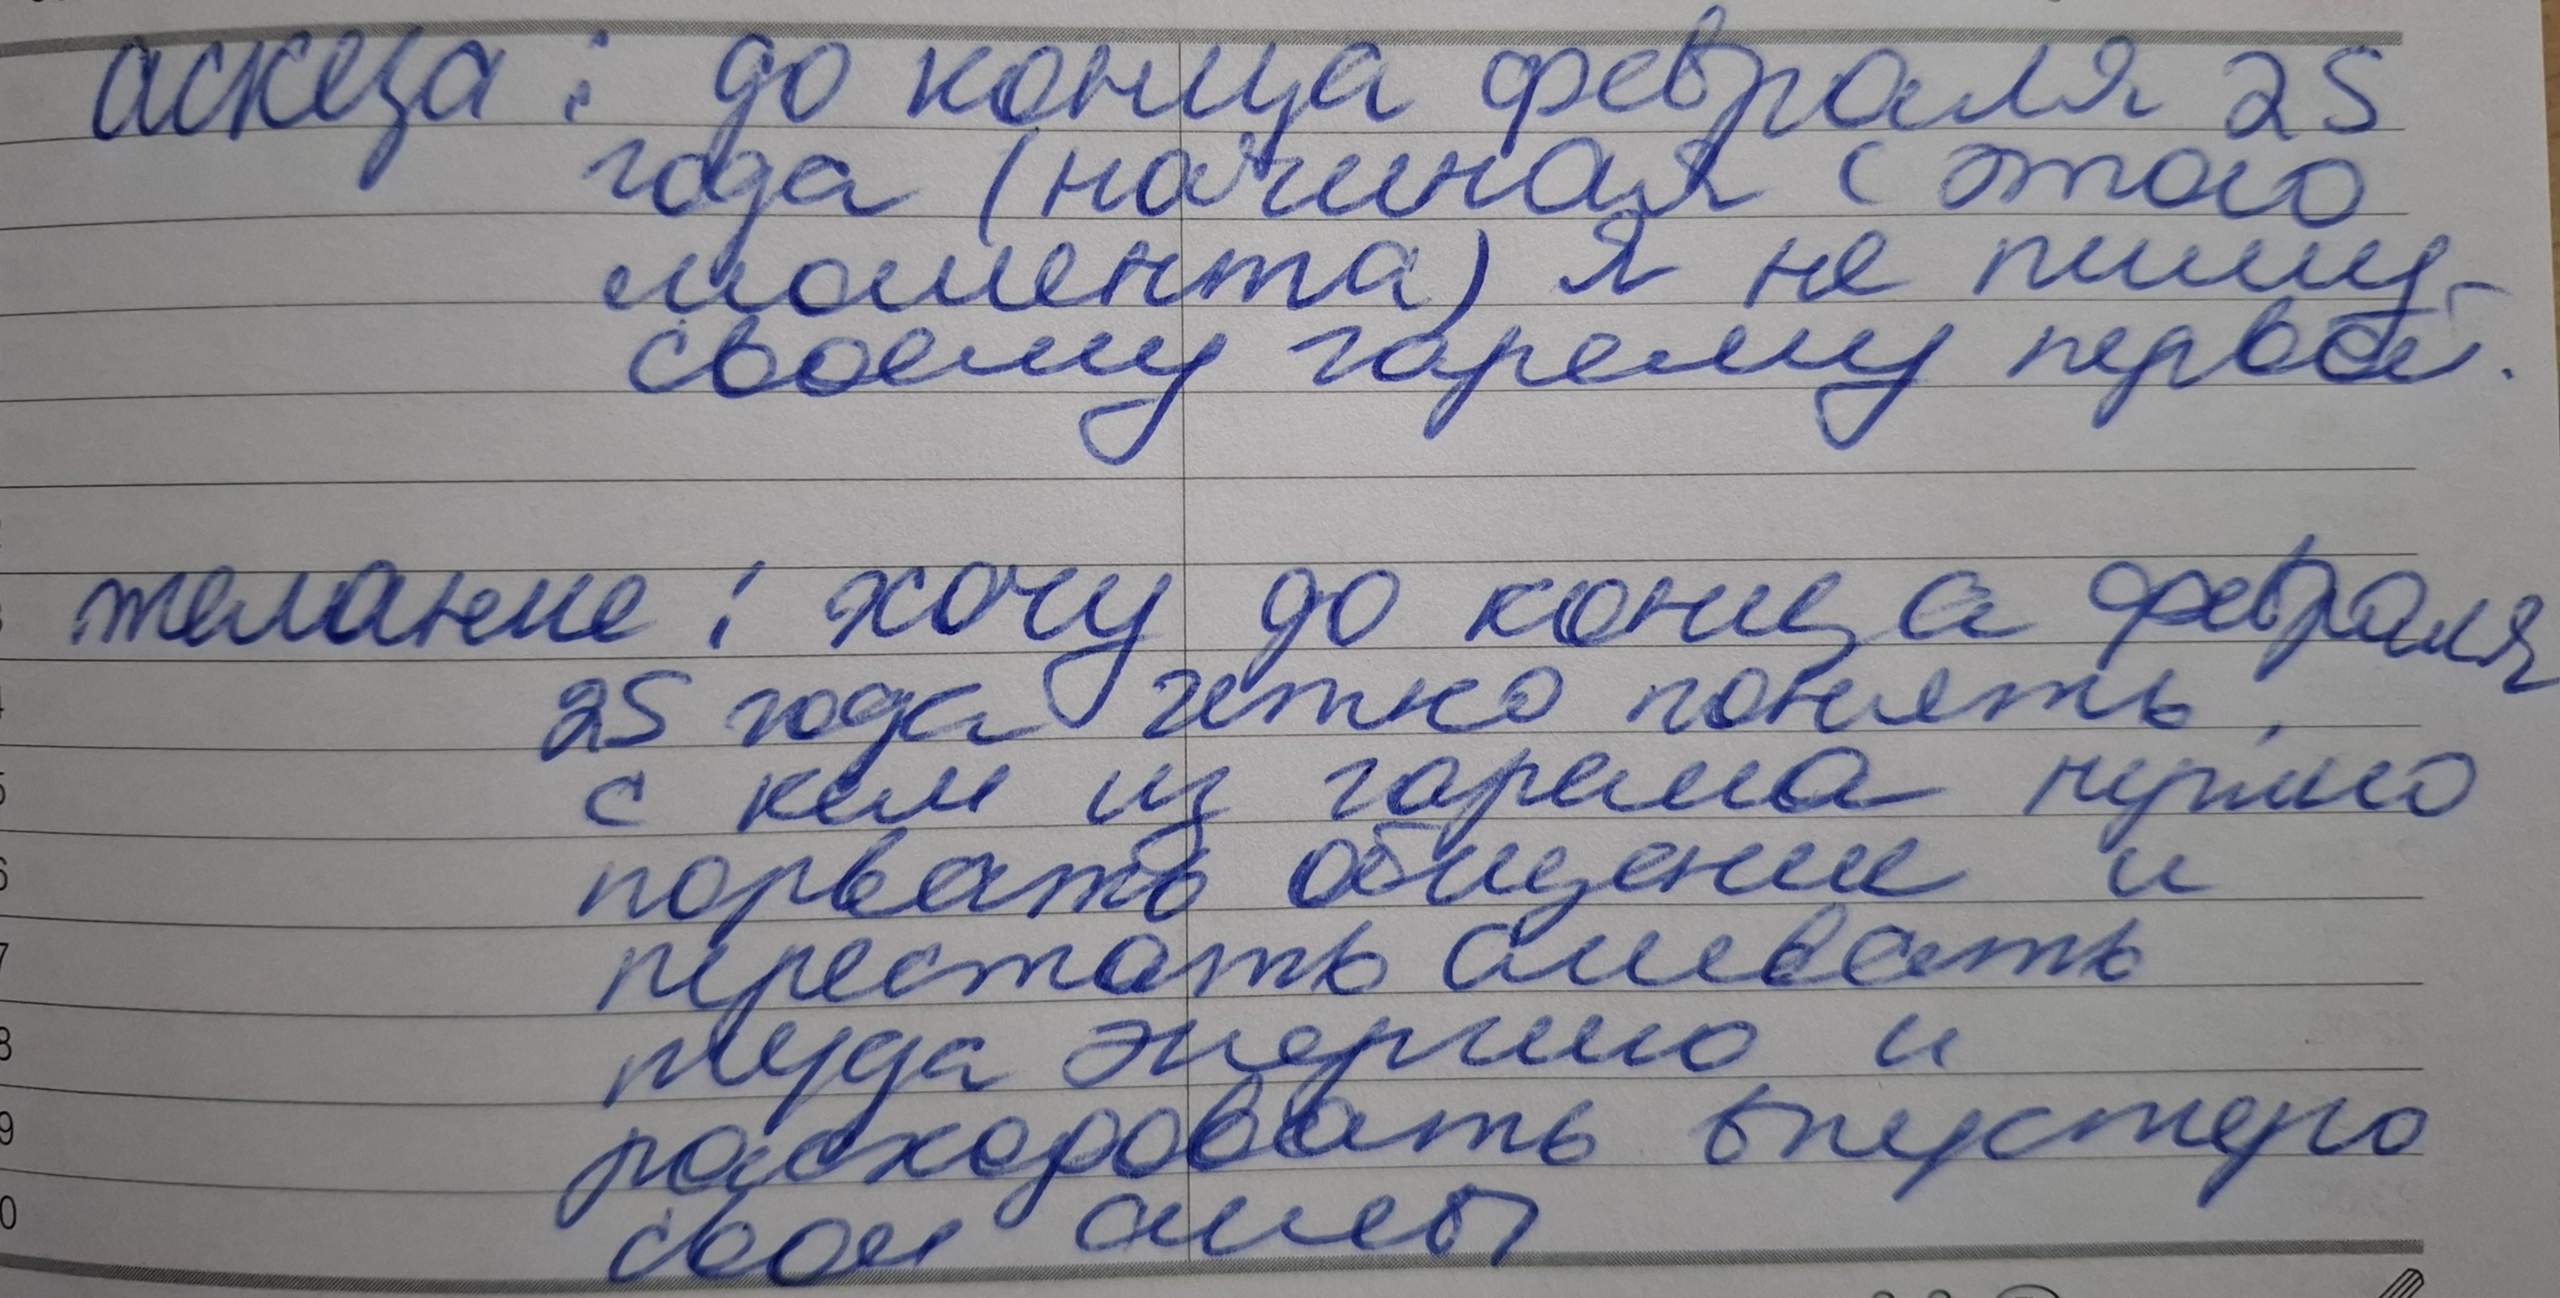 аскеза: до конца февраля 25
года (начиная с этого
момента) я не пишу
своему гарему первой.
желание: хочу до конца февраля
25 года четко понять,
с кем из гарема нужно
порвать общение и
перестать сливать
туда энергию и
расходовать впустую
свои силы